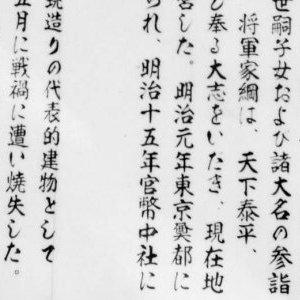 世嗣子女および諸大名の参詣
将軍家綱は、天下泰平、
び奉る大志をいだき、現在地
営した。明治元年東京奠都に
られ、明治十五年官幣中社に
現造りの代表的建物として
五月に戦禍に遭い焼失した。